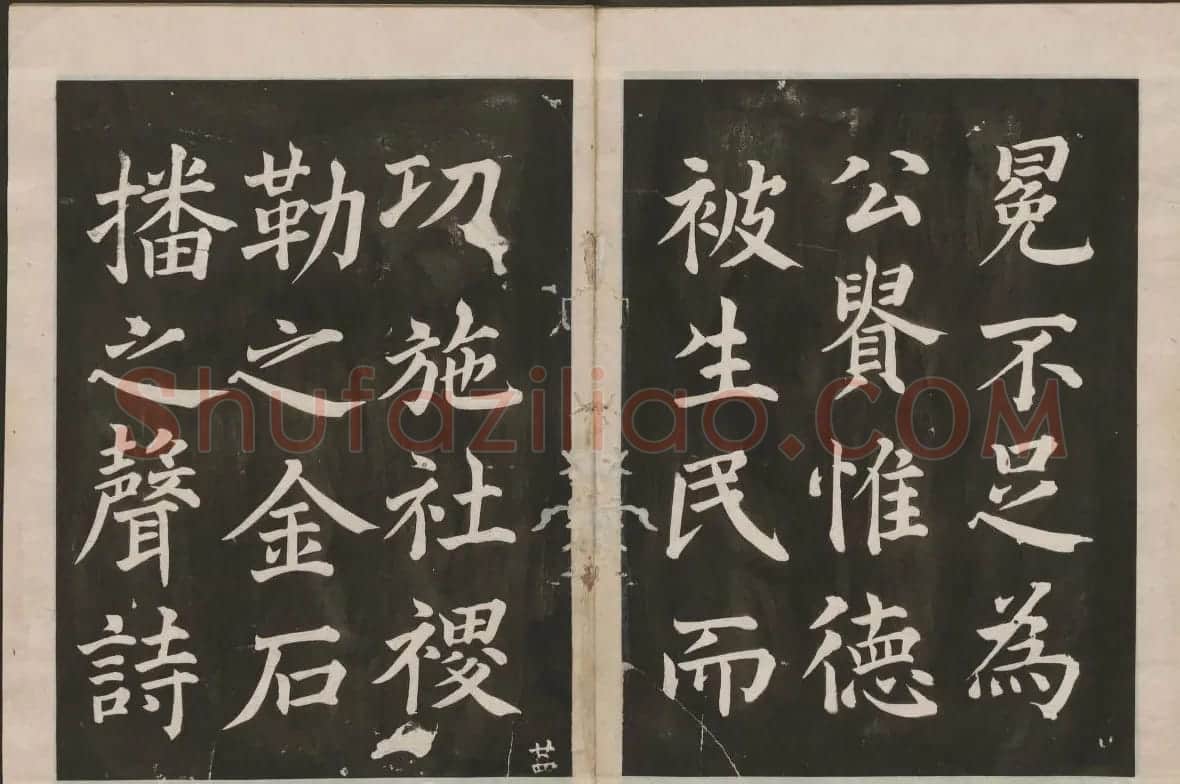 冕不足為
公貴惟德
被生民而
功施社稷
勒之金石
播之聲詩
Shufaziliao.COM